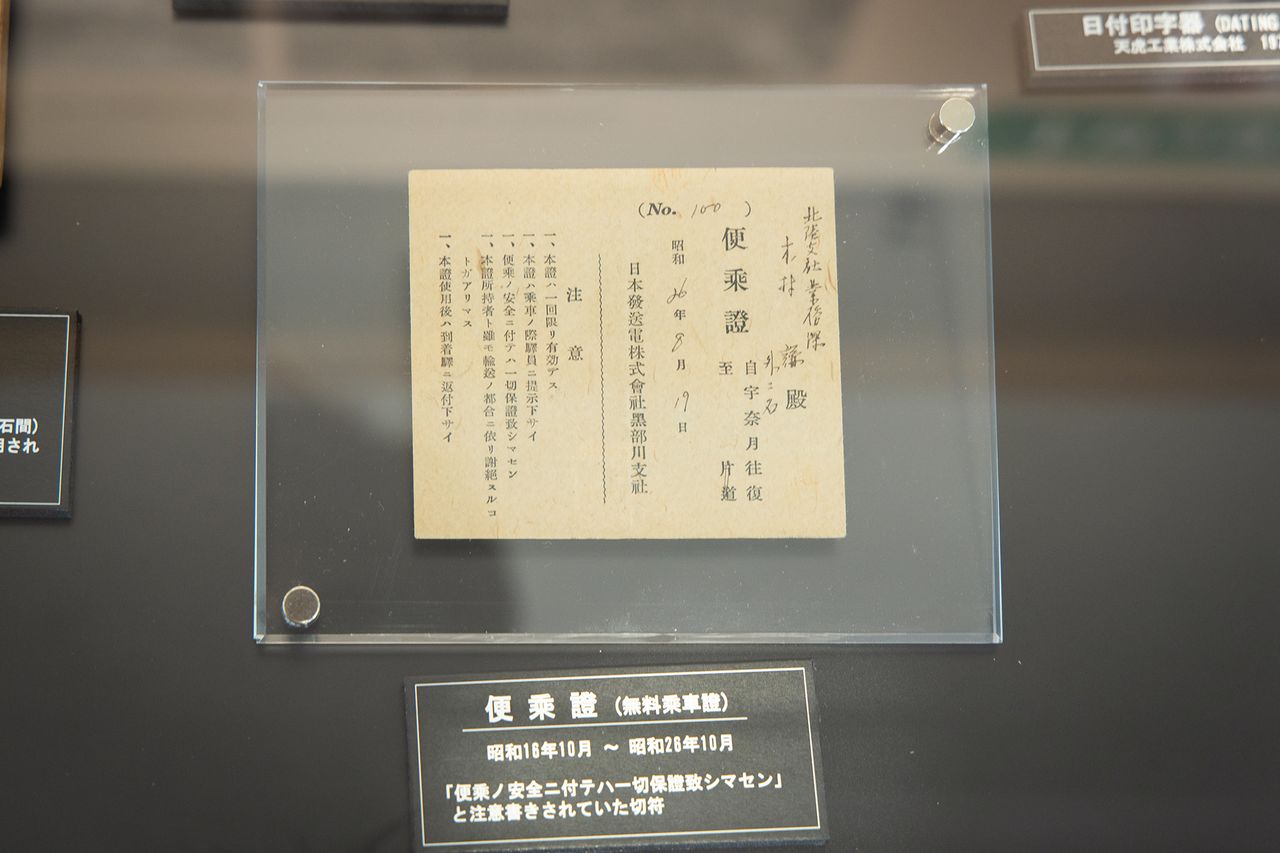 日付印字器 (DATING
天虎工業株式会社 19
石間)
用され
北陸支社業務課
木村 謙 殿
(No. 100 )
便乗證
自宇奈月往復
至 片道
昭和26年8月19日
日本發送電株式會社黑部川支社
注意
一、本證ハ一回限リ有効デス
一、本證ハ乘車ノ際驛員ニ提示下サイ
一、便乘ノ安全ニ付テハ一切保證致シマセン
一、本證所持者ト雖モ輸送ノ都合ニ依リ謝絕スルコ
トガアリマス
一、本證使用後ハ到着驛ニ返付下サイ
便乗證 (無料乗車證)
昭和16年10月 ～ 昭和26年10月
「便乗ノ安全ニ付テハ一切保證致シマセン」
と注意書きされていた切符